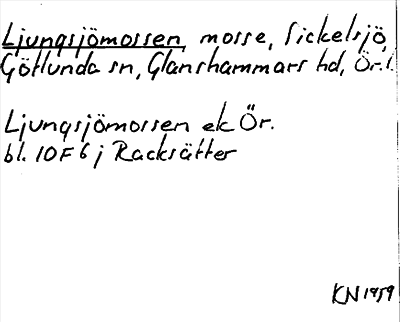 Ljungsjömossen, mosse, Sickelsjö,
Götlunda sn, Glanshammars hd, Ör.l.
Ljungsjömossen ek Ör.
bl. 10F6j Racksätter
KN 1959